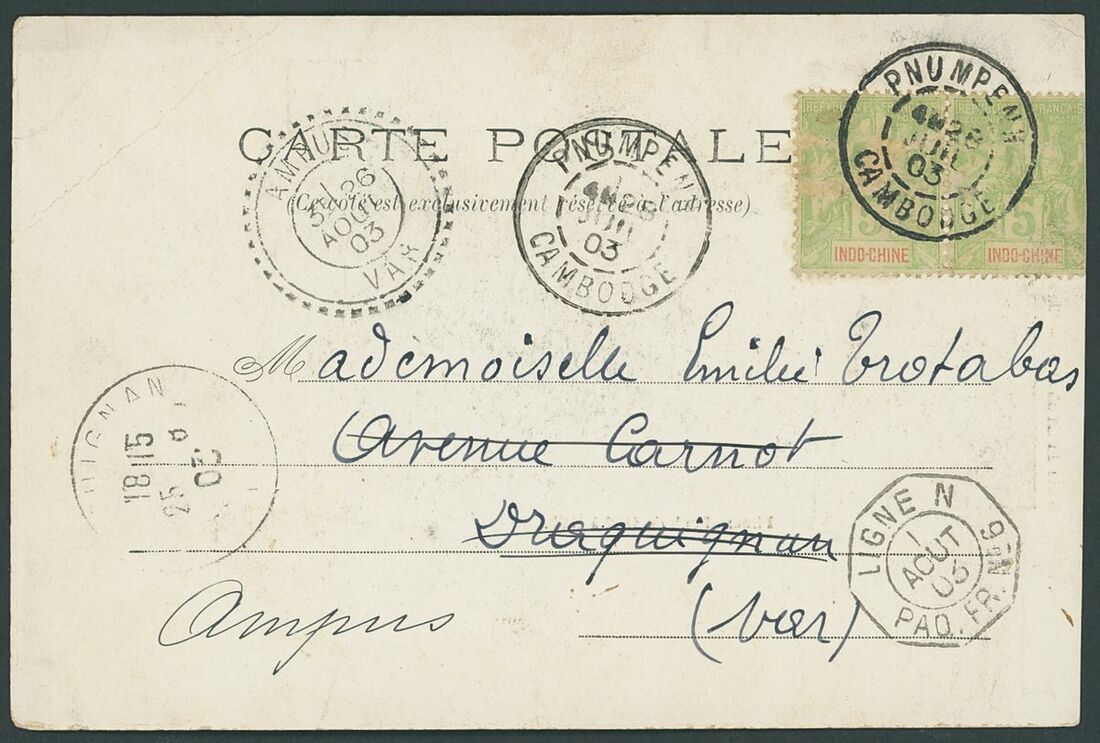 CARTE POSTALE
(Ce côté est exclusivement réservé à l'adresse)
PNUMPENH
4E 28
JUIL
03
CAMBODGE
INDO-CHINE
5
INDO-CHINE
PNUMPENH
JUIL
03
CAMBODGE
AMPUS
26
AOUT
03
VAR
Mademoiselle Emilie Trotabas
Avenue Carnot
Draguignan
(Var)
Ampus
UIGNAN
18 15
25
03
LIGNE N
1
AOUT
03
PAQ. FR. Nº 6